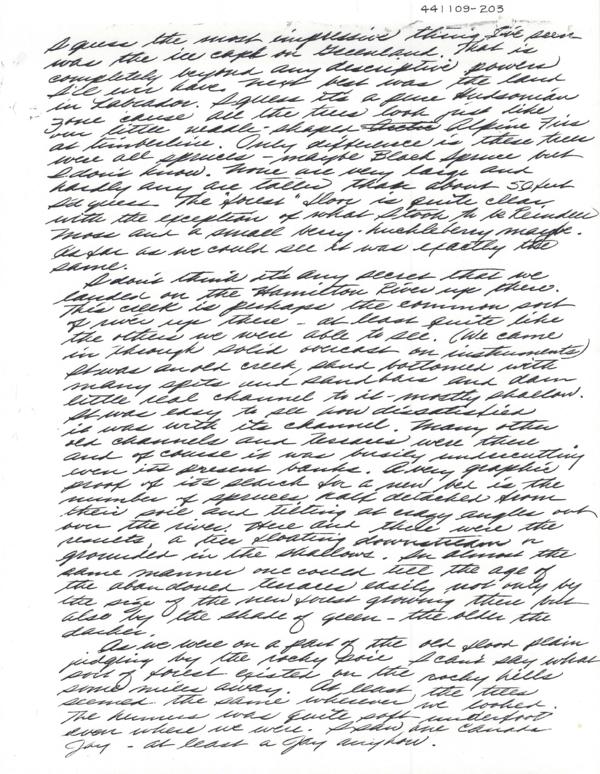 441109-203
I guess the most impressive thing I've seen
was the ice cap on Greenland. That is
completely beyond any descriptive powers
I'll ever have. Next best was the land
in Labrador. I guess its a pure Hudsonian
zone cause all the trees look just like
our little needle-shaped Arctic Alpine Firs
at timberline. Only difference is these trees
were all spruces - maybe Black Spruce but
I don't know. None are very large and
hardly any are taller than about 50 feet
I guess. The "forest" floor is quite clear,
with the exception of what I took to be Reindeer
Moss and a small berry - huckleberry maybe.
As far as we could see it was exactly the
same.
I don't think its any secret that we
landed on the Hamilton River up there.
This creek is perhaps the common sort
of river up there - at least quite like
the others we were able to see. (We came
in through solid overcast on instruments)
It was an old creek, sand bottomed with
many spits and sandbars and darn
little real channel to it - mostly shallow.
It was easy to see how dissatisfied
it was with its channel. Many other
old channels and terraces were there
and of course it was busily undercutting
even its present banks. A very graphic
proof of its search for a new bed is the
number of spruces half detached from
their soil and tilting at crazy angles out
over the river. Here and there were the
results, a tree floating downstream or
grounded in the shallows. In almost the
same manner one could tell the age of
the abandoned terraces easily, not only by
the size of the new forest growing there but
also by the shade of green - the older the
darker.
As we were on a part of the old flood plain
judging by the rocky soil I can't say what
sort of forest existed on the rocky hills
some miles away. At least the trees
seemed the same wherever we looked.
The humus was quite soft underfoot
even where we were. I saw one Canada
Jay - at least a Jay anyhow.